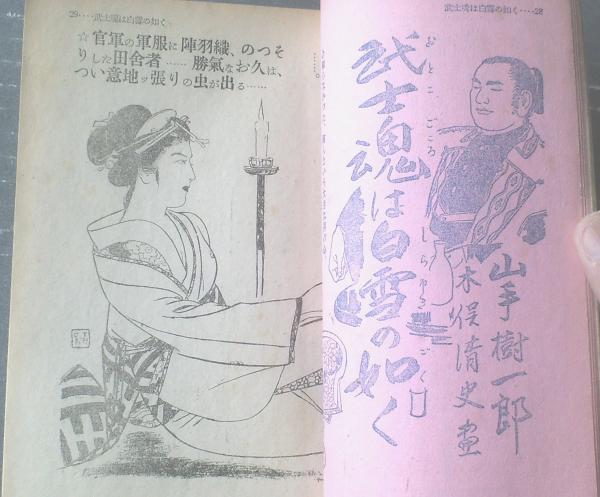 武士魂は白雪の如く‥‥28
武士魂は白雪の如く
おとこごころ
しらゆき
ごと
山手樹一郎
木俣清史画
29‥‥武士魂は白雪の如く
☆官軍の軍服に陣羽織、のつそ
りした田舎者……勝氣なお久は、
つい意地ッ張りの虫が出る……